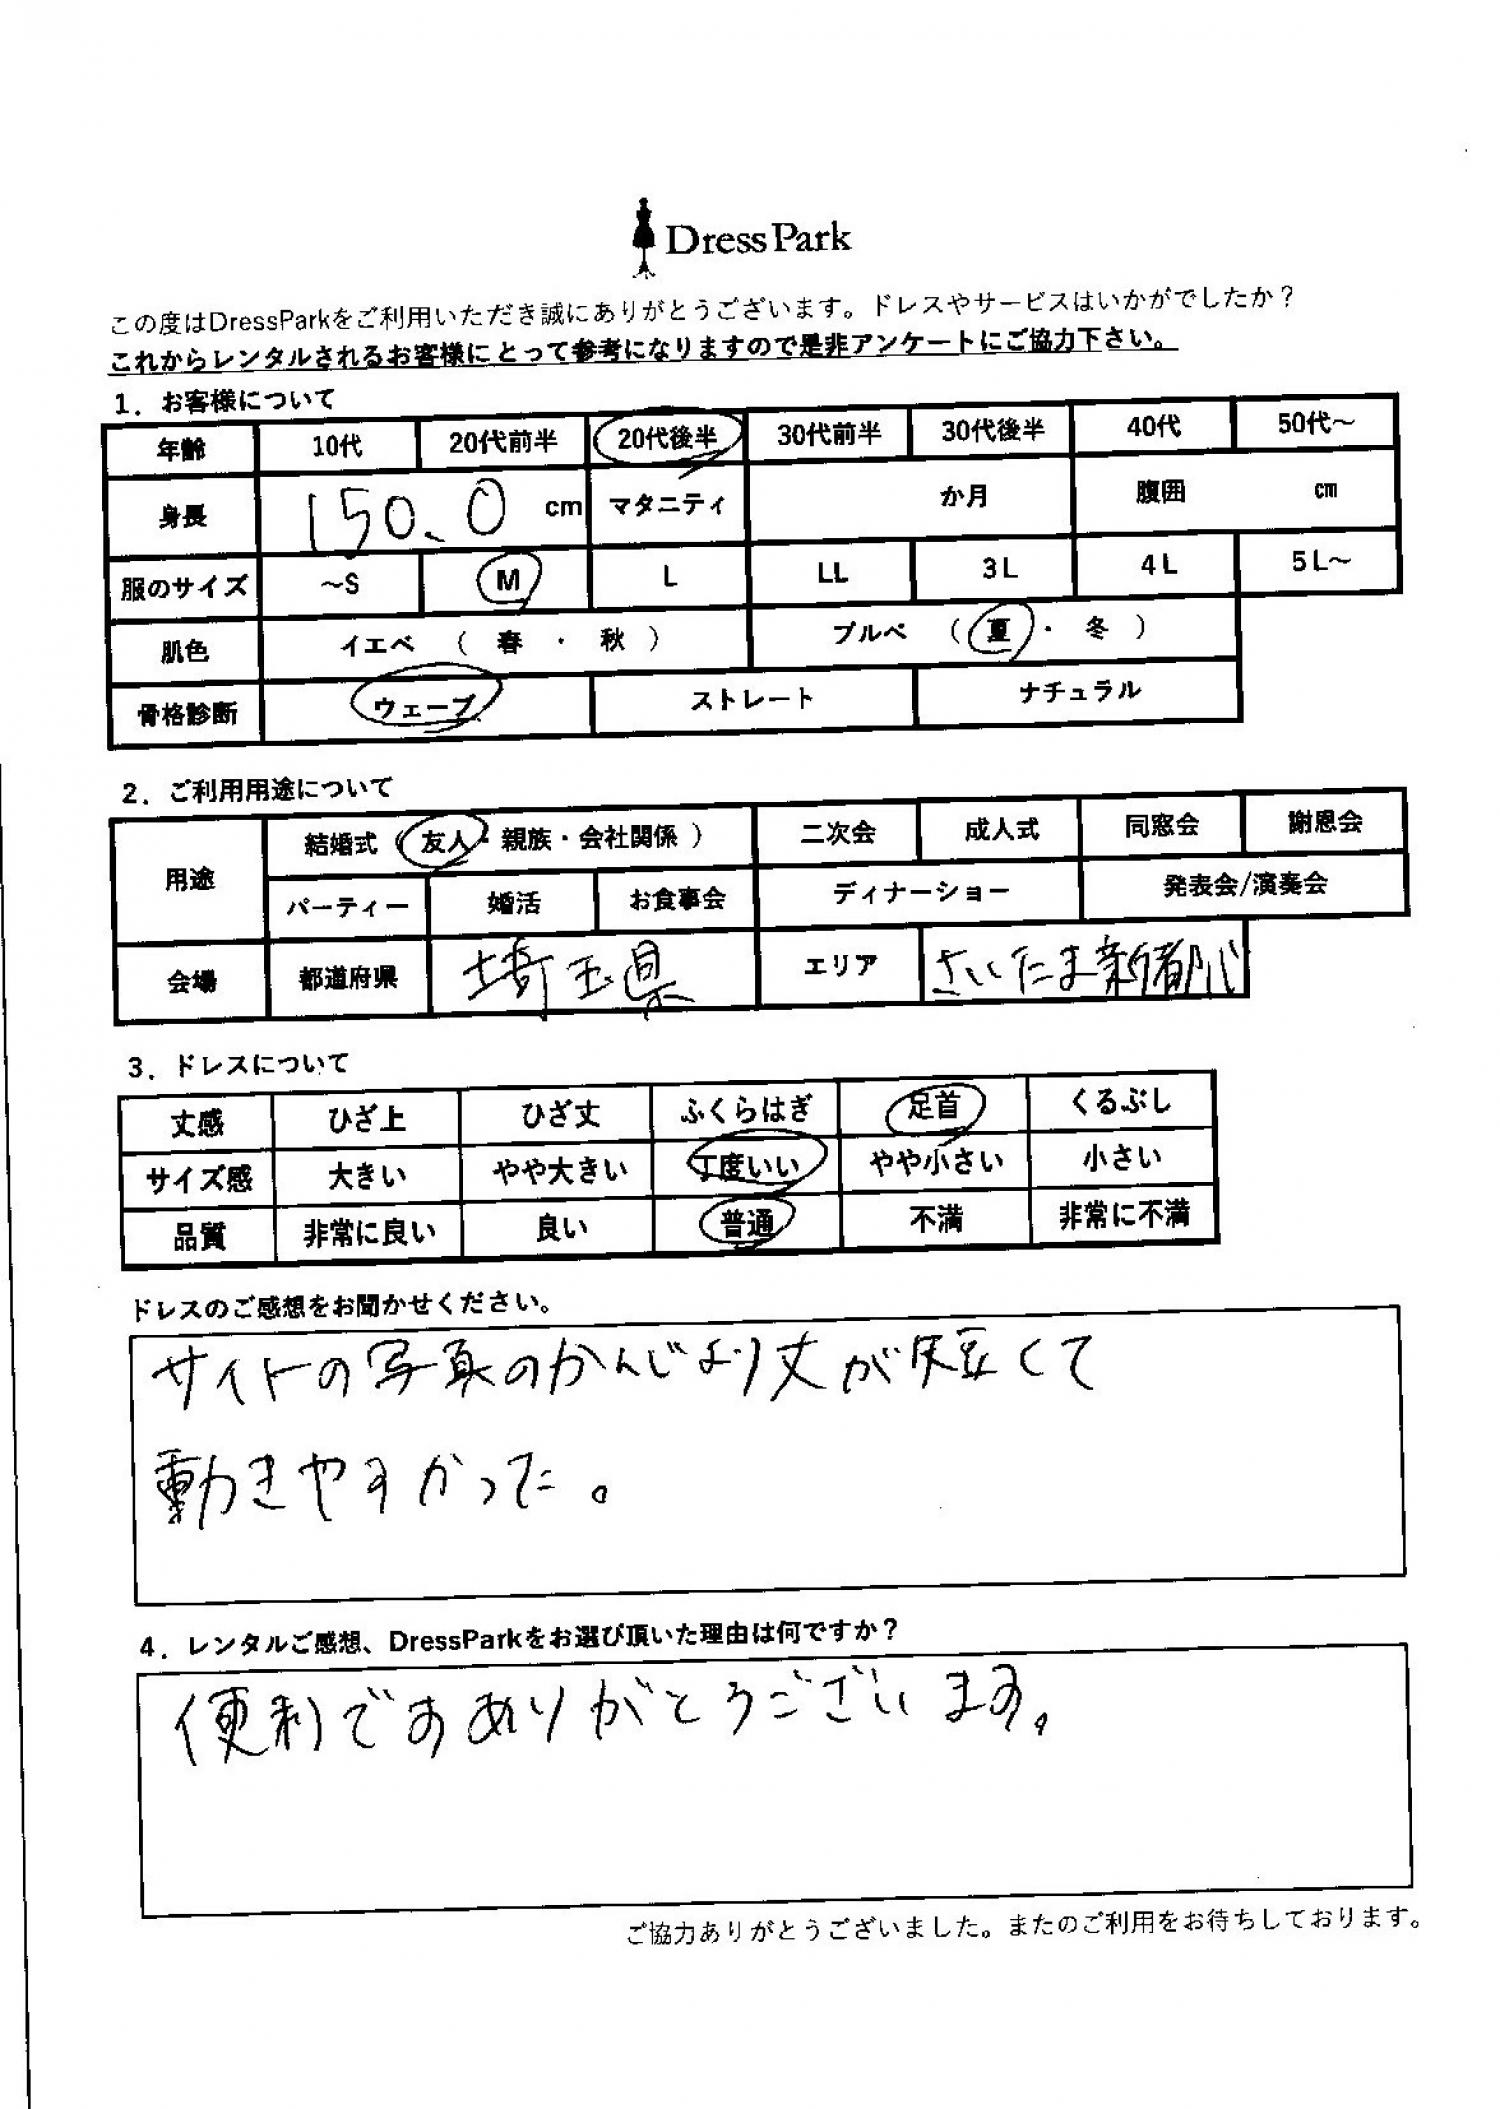 DressPark
この度はDressParkをご利用いただき誠にありがとうございます。ドレスやサービスはいかがでしたか？
これからレンタルされるお客様にとって参考になりますので是非アンケートにご協力下さい。
1．お客様について
年齢 10代 20代前半 20代後半 30代前半 30代後半 40代 50代～
身長 150.0 cm マタニティ か月 腹囲 cm
服のサイズ ～S M L LL 3L 4L 5L～
肌色 イエベ （ 春 ・ 秋 ） ブルベ （ 夏 ・ 冬 ）
骨格診断 ウェーブ ストレート ナチュラル
2．ご利用用途について
用途 結婚式（ 友人・親族・会社関係 ） 二次会 成人式 同窓会 謝恩会
パーティー 婚活 お食事会 ディナーショー 発表会/演奏会
会場 都道府県 埼玉県 エリア さいたま新都心
3．ドレスについて
丈感 ひざ上 ひざ丈 ふくらはぎ 足首 くるぶし
サイズ感 大きい やや大きい 丁度いい やや小さい 小さい
品質 非常に良い 良い 普通 不満 非常に不満
ドレスのご感想をお聞かせください。
サイトの写真のかんじより丈が短くて
動きやすかった。
4．レンタルご感想、DressParkをお選び頂いた理由は何ですか？
便利ですありがとうございます。
ご協力ありがとうございました。またのご利用をお待ちしております。